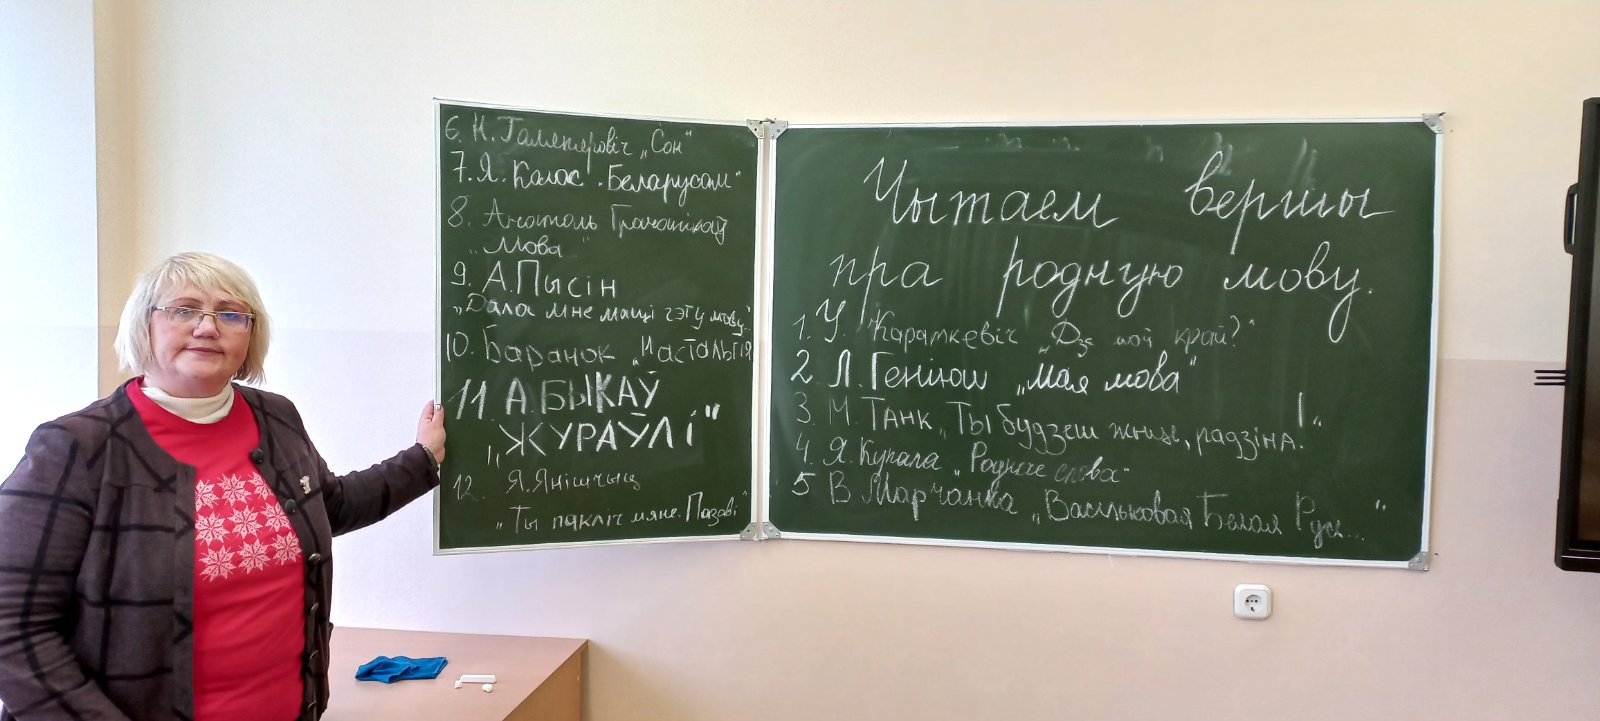 Чытаем вершы
пра родную мову.
1. У. Караткевіч „Дзе мой край?“
2. Л. Геніюш „Мая мова“
3. М. Танк „Ты будзеш жыць, радзіна.“
4. Я. Купала „Роднае слова“
5 В Марчанка „Васільковая Белая Русь...“
6. Н. Гальпяровіч „Сон“
7. Я. Колас „Беларусам“
8. Анатоль Грачанікаў
„Мова“
9. А. Пысін
„Дала мне маці гэту мову...“
10. Баранок „Настальгія
11 А. БЫКАЎ
„ЖУРАЎЛІ“
12. Я. Янішчыц
„Ты пакліч мяне. Пазаві“